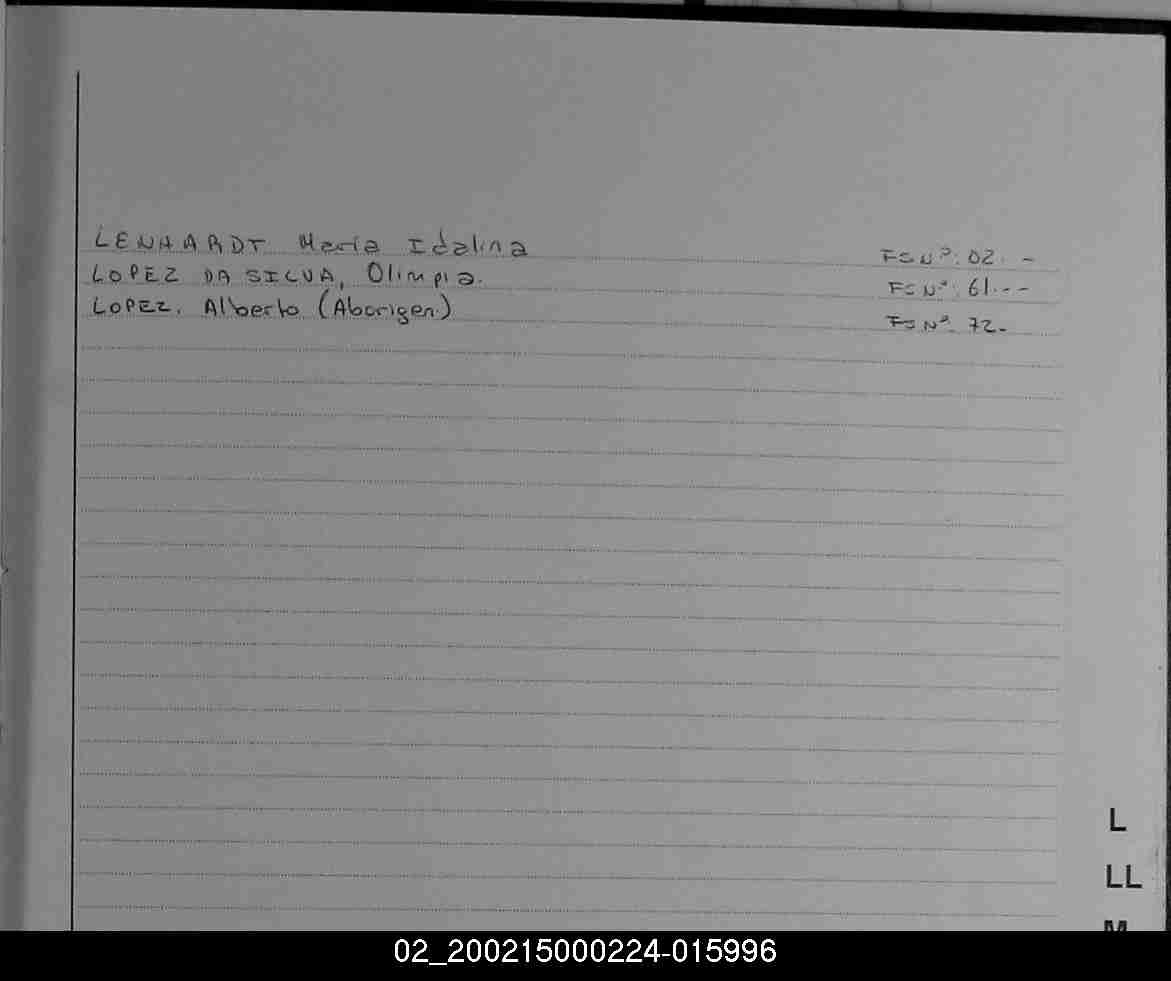 LENHARDT Maria Idalina FS Nº: 02. -
LOPEZ DA SILVA, Olimpia. FS Nº: 61.--
LOPEZ. Alberto (Aborigen.) FS Nº 72.-
L
LL
M
02_200215000224-015996